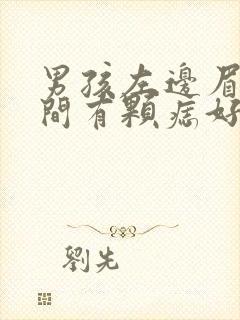 男孩左邊眉
間有顆痣好
劉先